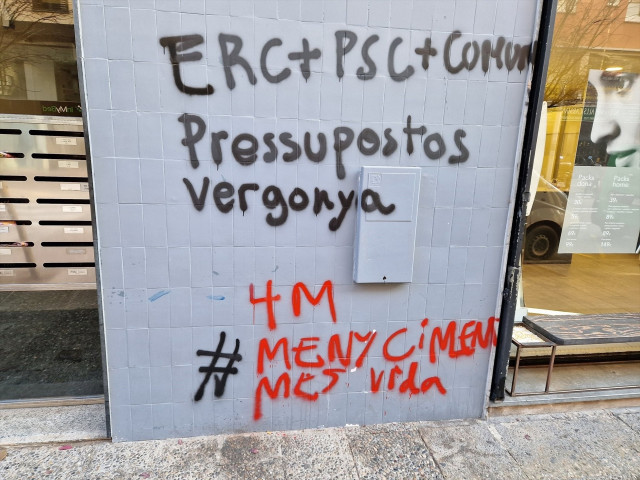 ERC+PSC+COMUN
Pressupostos
vergonya
4M
#MENYS CIMENT
MES vida
InMyBed